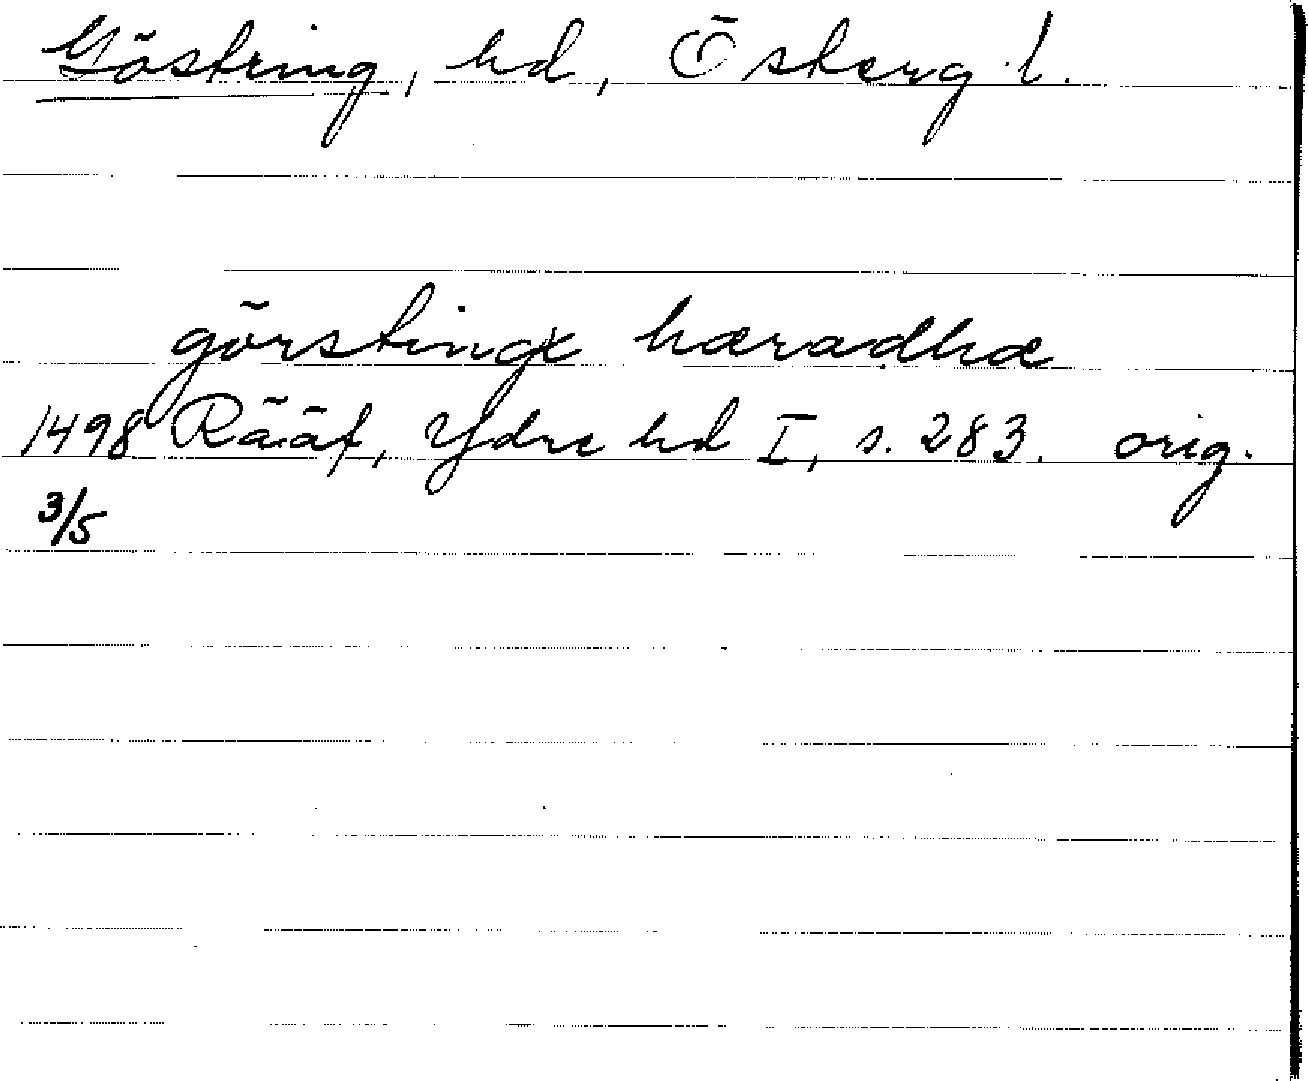 Göstring, hd, Österg. l.
görstingx hæradhæ
1498 Rääf, Ydre hd I, s. 283. orig.
3/5